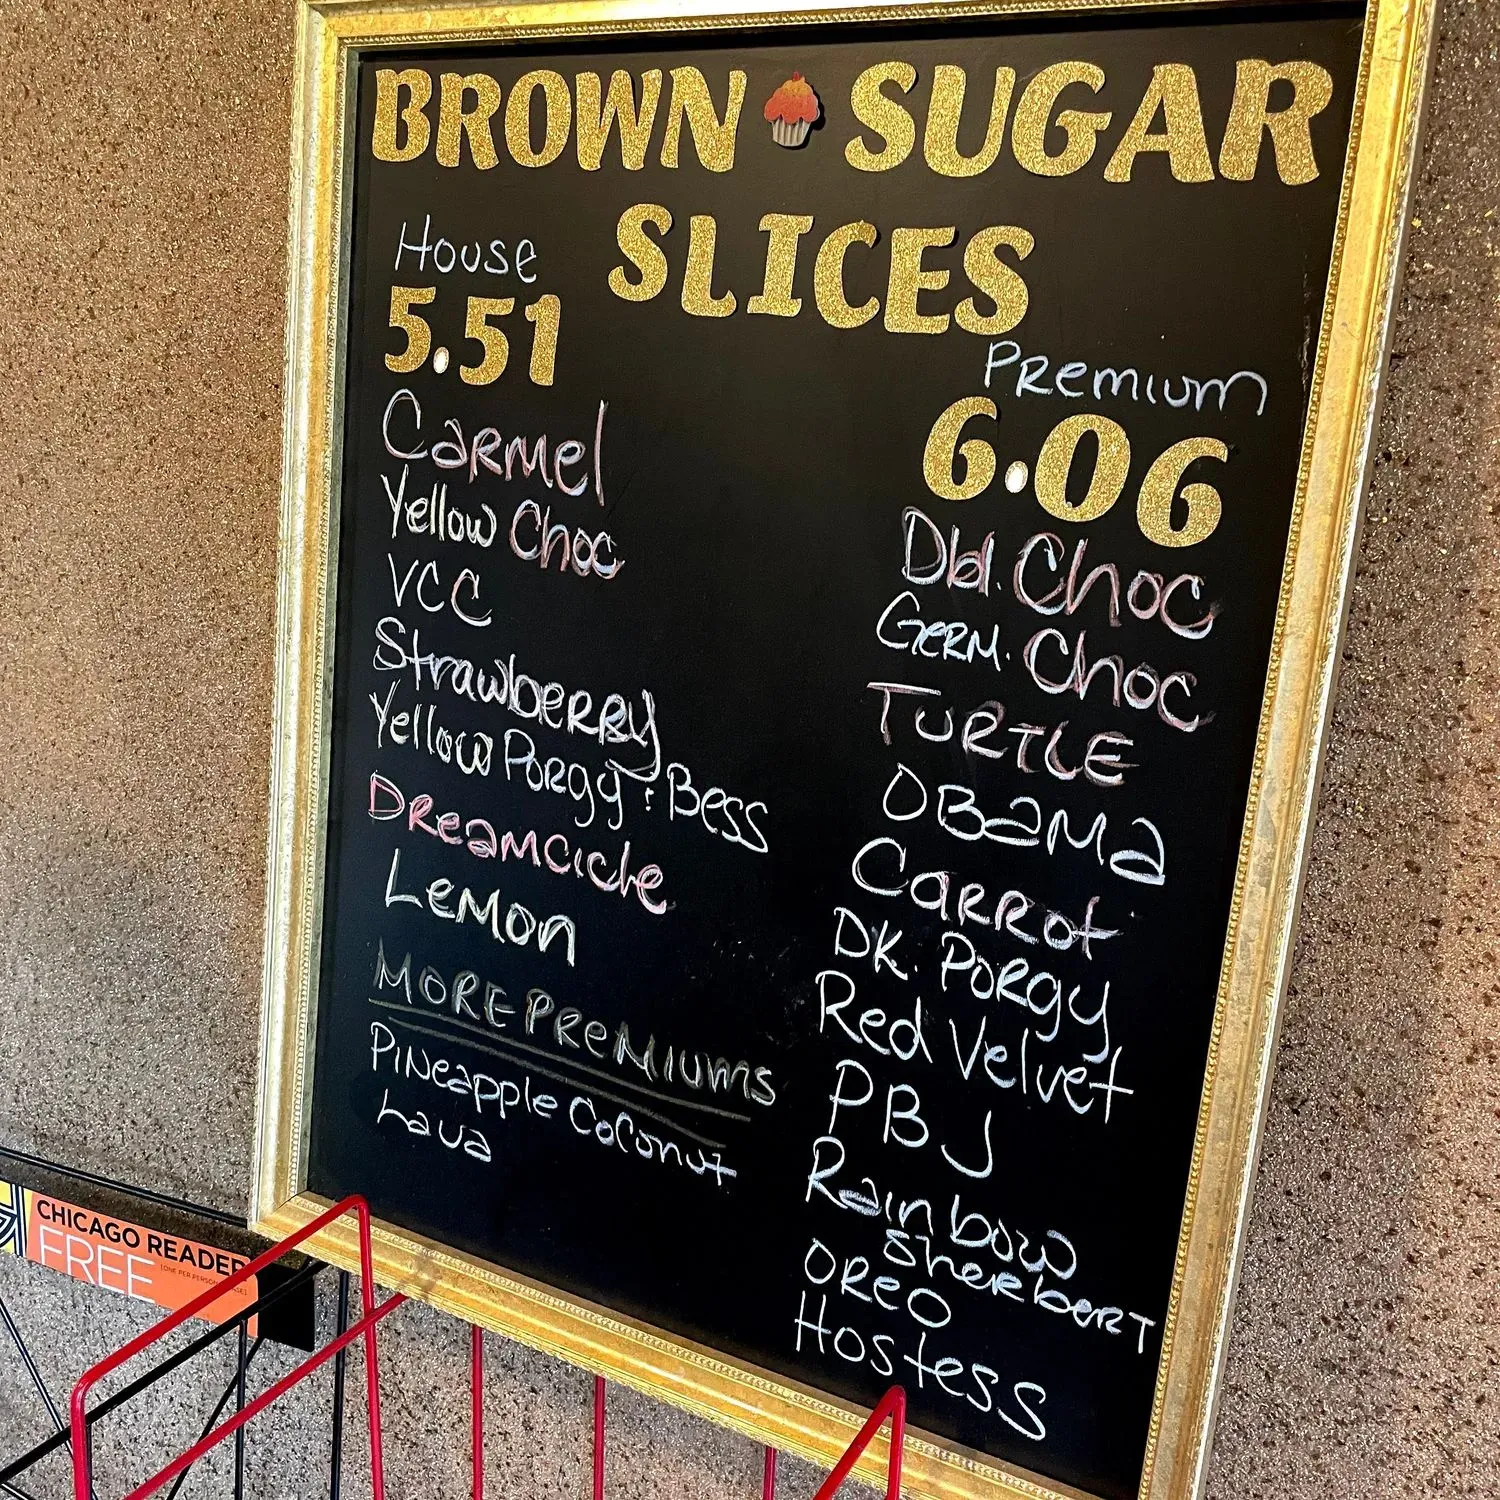 BROWN SUGAR
SLICES
House
5.51
Carmel
Yellow Choc
VCC
Strawberry
Yellow Porgy & Bess
Dreamcicle
Lemon
MORE PREMIUMS
Pineapple Coconut
Lava
Premium
6.06
Dbl. Choc
Germ. Choc
TURTLE
OBama
Carrot
DK. Porgy
Red Velvet
PBJ
Rainbow
Sherbert
OREO
Hostess
CHICAGO READER
FREE